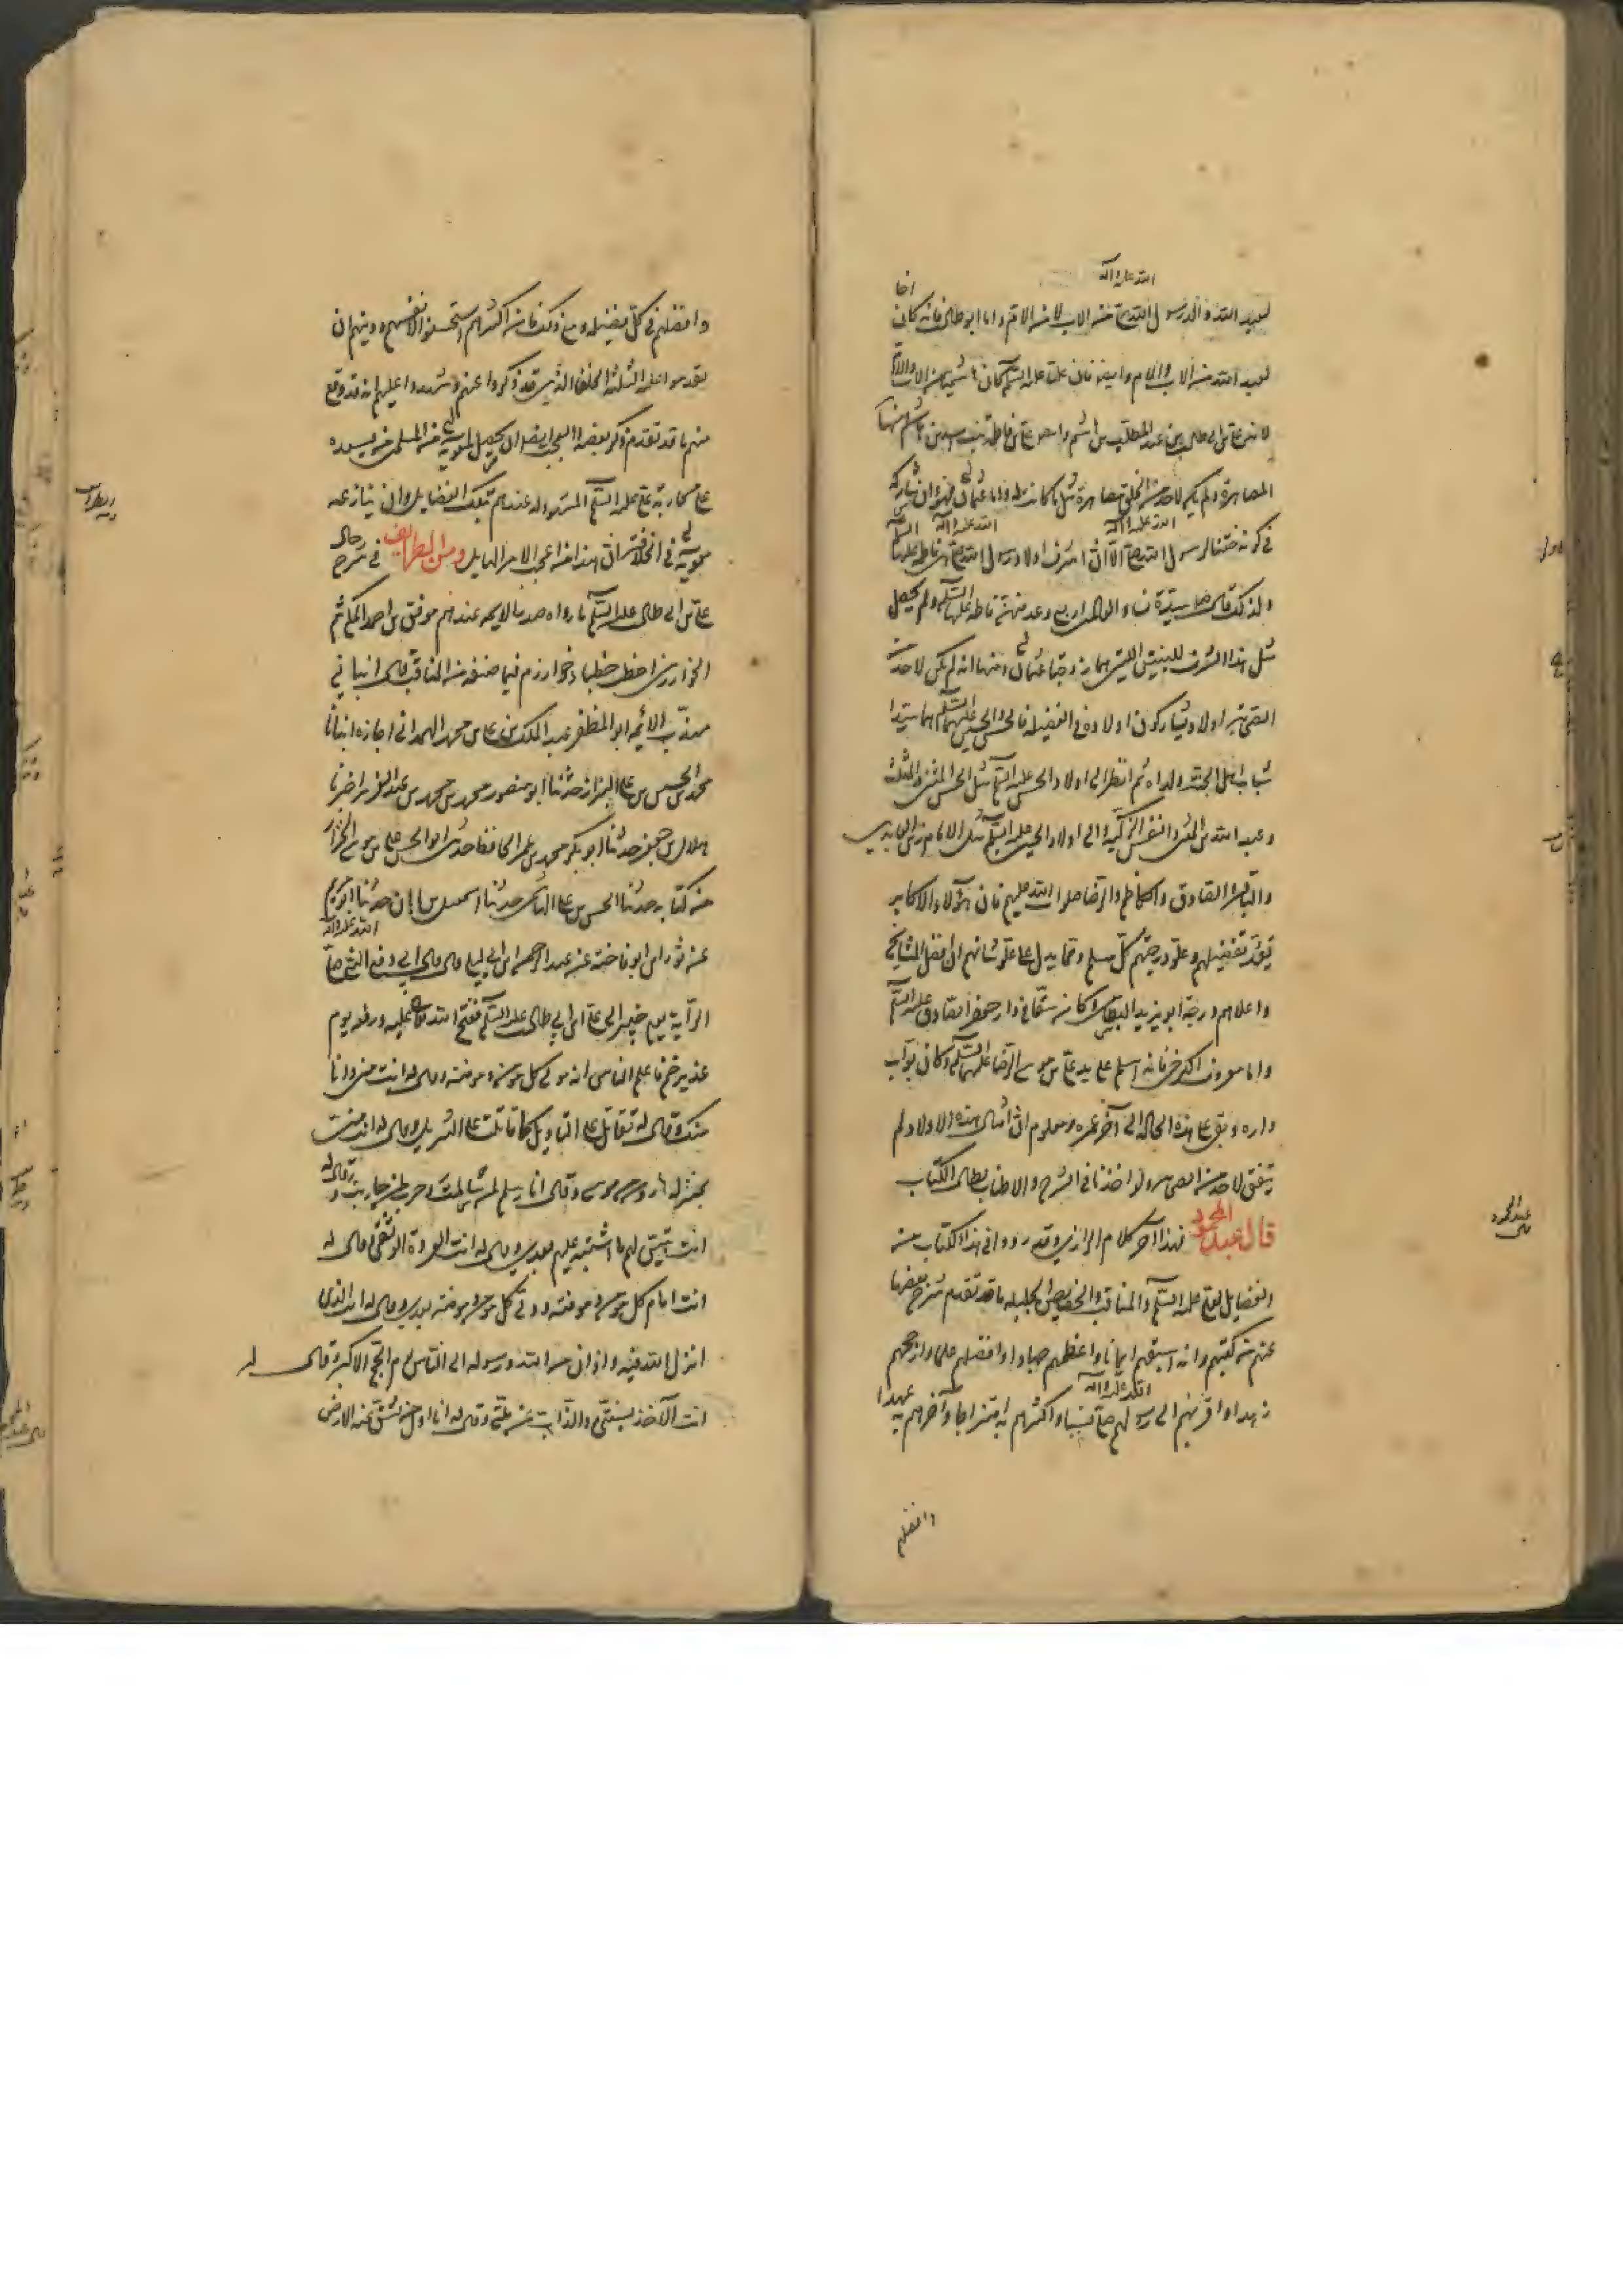 الله عليه وآله
اخا
لعبد الله والد رسول الله ص من الاب لا من الام واما ابو طالب فانه كان
لعبد الله من الاب والام وايضا فان عليا عليه السلم كان هاشميا من الاب والام
لانه علي بن ابي طالب بن عبد المطلب بن هاشم وام علي فاطمة بنت اسد بن هاشم ومنها
المصاهرة ولم يكن لاحد من الخلق مصاهرة مثل ما كانت له واما عثمان فهو وان شاركه
في كونه ختنا لرسول الله ص الا ان اشرف اولاد رسول الله ص هي فاطمة عليها السلم
ولذلك قال ص سيدة نساء العالمين اربع وعد منهن فاطمة عليها السلم ولم يحصل
مثل هذا الشرف للبنتين اللتين هما زوجتا عثمان ومنها انه لم يكن لاحد من
الصحابة اولاد يشاركون اولاده في الفضيلة فالحسن والحسين عليهما السلم هما سيدا
شباب اهل الجنة ولداه ثم انظر الى اولاد الحسن عليه السلم مثل الحسن المثنى والمثلث
وعبد الله بن المثنى والنفس الزكية والى اولاد الحسين عليه السلم مثل الامام زين العابدين
والباقر والصادق والكاظم والرضا صلوات الله عليهم فان هؤلاء الاكابر
يقر بفضيلهم وعلو درجتهم كل مسلم ومما يدل على علو شانهم ان افضل المشايخ
واعلاهم درجة ابو يزيد البسطامي كان سقا في دار جعفر الصادق عليه السلم
واما معروف الكرخي فانه اسلم على يد علي بن موسى الرضا عليهما السلم وكان بواب
داره وبقي على هذه الحالة الى آخر عمره ومعلوم ان امثال هذه الاولاد لم
يتفق لاحد من الصحابة ولو اخذنا في الشرح والاطناب لطال الكتاب
قال عبد المحمود فهذا آخر كلام الرازي وقد روو في هذا الكتاب من
الفضايل لعلي عليه السلم والمناقب والخصايص الجليلة ما قد تقدم شرح بعضها
عنهم من كتبهم وانه اسبقهم ايمانا واعظمهم جهادا وافضلهم علما وارجحهم
زهدا واقربهم الى رسولهم ص نسبا واكثرهم به امتزاجا وآخرهم به عهدا
وافضلهم
عبد المحمود
قال
وافضلهم في كل فضيلة ومع ذلك فان اكثرهم استحسنوا لانفسهم ودينهم ان
يقدموا عليه الثلثة الخلفا الذين قد ذكروا عنهم وشهدوا عليهم انه قد وقع
منهم ما قد تقدم ذكر بعضه والعجب ايضا ان يحصل لمعوية من المسلمين من يسعده
على محاربة علي عليه السلم المشهود له عندهم بتلك الفضايل وان ينازعه
معوية في الخلافة ان هذا من اعجب الامر الهايل ومن الطرايف في شرح حال
علي بن ابي طالب عليه السلم ما رواه صدر الائمة عندهم موفق بن احمد المكي ثم
الخوارزمي اخطب خطباء خوارزم فيما صنفه من المناقب قال انباني
مهذب الائمه ابو المظفر عبد الملك بن علي بن محمد الهمداني اجازة انبانا
محمد بن الحسين بن علي البزاز حدثنا ابو منصور محمد بن محمد بن عبد العزيز اخبرنا
هلال بن جعفر حدثنا ابو بكر محمد بن عمر الحافظ حدثني ابو الحسن علي بن موسى الخزاز
من كتابه حدثنا الحسن بن علي الهاشمي حدثنا اسمعيل بن ابان حدثنا ابو مريم
عن ثور ابن ابو فاخته عن عبد الرحمن ابن ابي ليلى قال قال ابي دفع النبي ص
الراية يوم خيبر الى علي ابن ابي طالب عليه السلم ففتح الله تعالى عليه ورفعه يوم
غدير خم فاعلم الناس انه مولى كل مؤمن ومؤمنة وقال له انت مني وانا
منك وقال له تقاتل على التاويل كما قاتلت على التنزيل وقال له انت مني
بمنزلة هارون من موسى وقال انا سلم لمن سالمت وحرب لمن حاربت وقال له
انت تبين لهم ما اشتبه عليهم بعدي وقال له انت العروة الوثقى وقال له
انت امام كل مؤمن ومؤمنة وولي كل مؤمن ومؤمنة بعدي وقال له انت الذي
انزل الله فيه واذان من الله ورسوله الى الناس يوم الحج الاكبر وقال له
انت الآخذ بسنتي والذاب عن ملتي وقال له انا اول من تنشق عنه الارض